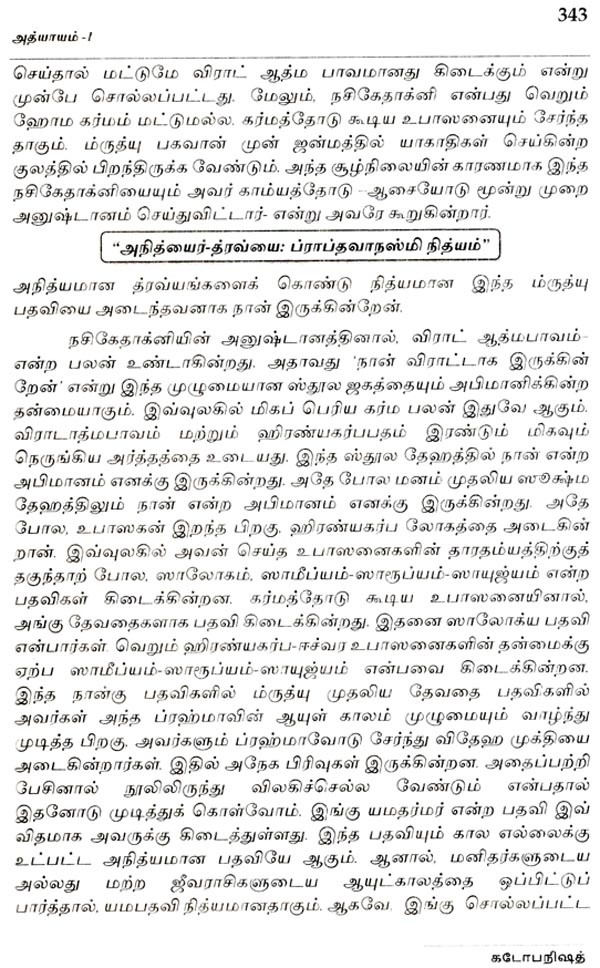 343
அத்யாயம் -1
செய்தால் மட்டுமே விராட் ஆத்ம பாவமானது கிடைக்கும் என்று
முன்பே சொல்லப்பட்டது. மேலும், நசிகேதாக்னி என்பது வெறும்
ஹோம கர்மம் மட்டுமல்ல. கர்மத்தோடு கூடிய உபாஸனையும் சேர்ந்த
தாகும். ம்ருத்யு பகவான் முன் ஜன்மத்தில் யாகாதிகள் செய்கின்ற
குலத்தில் பிறந்திருக்க வேண்டும். அந்த சூழ்நிலையின் காரணமாக இந்த
நசிகேதாக்னியையும் அவர் காம்யத்தோடு -ஆசையோடு மூன்று முறை
அனுஷ்டானம் செய்துவிட்டார்- என்று அவரே கூறுகின்றார்.
“அநித்யைர்-த்ரவ்யை: ப்ராப்தவாநஸ்மி நித்யம்”
அநித்யமான த்ரவ்யங்களைக் கொண்டு நித்யமான இந்த ம்ருத்யு
பதவியை அடைந்தவனாக நான் இருக்கின்றேன்.
நசிகேதாக்னியின் அனுஷ்டானத்தினால், விராட் ஆத்மபாவம்-
என்ற பலன் உண்டாகின்றது. அதாவது ‘நான் விராட்டாக இருக்கின்
றேன்’ என்று இந்த முழுமையான ஸ்தூல ஜகத்தையும் அபிமானிக்கின்ற
தன்மையாகும். இவ்வுலகில் மிகப் பெரிய கர்ம பலன் இதுவே ஆகும்.
விராடாத்மபாவம் மற்றும் ஹிரண்யகர்பபதம் இரண்டும் மிகவும்
நெருங்கிய அர்த்தத்தை உடையது. இந்த ஸ்தூல தேஹத்தில் நான் என்ற
அபிமானம் எனக்கு இருக்கின்றது. அதே போல மனம் முதலிய ஸூக்ஷ்ம
தேஹத்திலும் நான் என்ற அபிமானம் எனக்கு இருக்கின்றது. அதே
போல, உபாஸகன் இறந்த பிறகு, ஹிரண்யகர்ப லோகத்தை அடைகின்
றான். இவ்வுலகில் அவன் செய்த உபாஸனைகளின் தாரதம்யத்திற்குத்
தகுந்தாற் போல, ஸாலோகம், ஸாமீப்யம்-ஸாரூப்யம்-ஸாயுஜ்யம் என்ற
பதவிகள் கிடைக்கின்றன. கர்மத்தோடு கூடிய உபாஸனையினால்,
அங்கு தேவதைகளாக பதவி கிடைக்கின்றது. இதனை ஸாலோக்ய பதவி
என்பார்கள். வெறும் ஹிரண்யகர்ப-ஈச்வர உபாஸனைகளின் தன்மைக்கு
ஏற்ப ஸாமீப்யம்-ஸாரூப்யம்-ஸாயுஜ்யம் என்பவை கிடைக்கின்றன.
இந்த நான்கு பதவிகளில் ம்ருத்யு முதலிய தேவதை பதவிகளில்
அவர்கள் அந்த ப்ரஹ்மாவின் ஆயுள் காலம் முழுமையும் வாழ்ந்து
முடித்த பிறகு, அவர்களும் ப்ரஹ்மாவோடு சேர்ந்து விதேஹ முக்தியை
அடைகின்றார்கள். இதில் அநேக பிரிவுகள் இருக்கின்றன. அதைப்பற்றி
பேசினால் நூலிலிருந்து விலகிச்செல்ல வேண்டும் என்பதால்
இதனோடு முடித்துக் கொள்வோம். இங்கு யமதர்மர் என்ற பதவி இவ்
விதமாக அவருக்கு கிடைத்துள்ளது. இந்த பதவியும் கால எல்லைக்கு
உட்பட்ட அநித்யமான பதவியே ஆகும். ஆனால், மனிதர்களுடைய
அல்லது மற்ற ஜீவராசிகளுடைய ஆயுட்காலத்தை ஒப்பிட்டுப்
பார்த்தால், யமபதவி நித்யமானதாகும். ஆகவே, இங்கு சொல்லப்பட்ட
கடோபநிஷத்